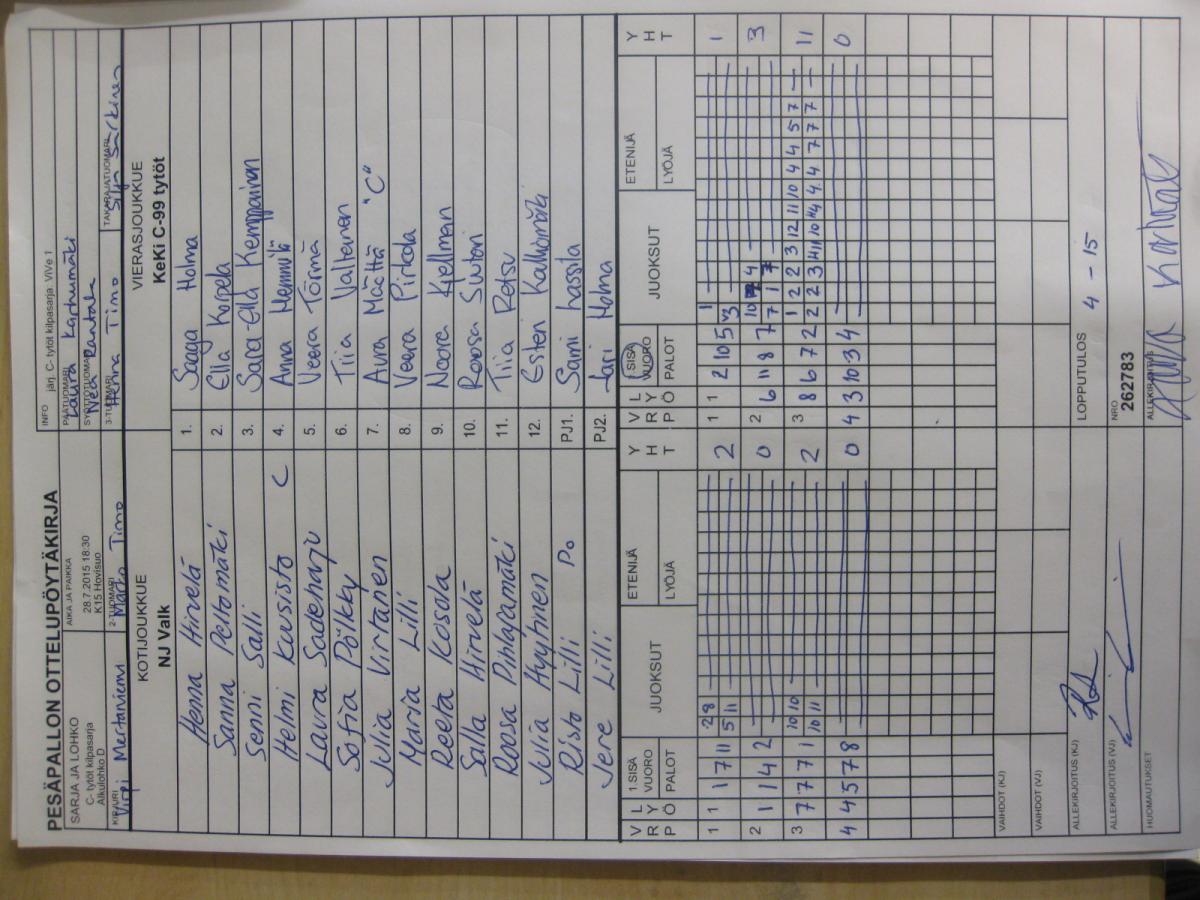 PESÄPALLON OTTELUPÖYTÄKIRJA
SARJA JA LOHKO
C- tytöt kilpasarja
Alkulohko D
AIKA JA PAIKKA
28.7.2015 18:30
K15 Hovisuo
INFO järj. C- tytöt kilpasarja : ViVe 1
PÄÄTUOMARI
Laura Karhumäki
SYÖTTÖTUOMARI
Nea Rautala
KIRJURI
Virpi Mertaniemi
2-TUOMARI
Marko Timo
3-TUOMARI
Henna Timo
TAKARAJATUOMARI
Silja Särkinen
KOTIJOUKKUE
NJ Valk
VIERASJOUKKUE
KeKi C-99 tytöt
Henna Hirvelä 1. Saaga Holma
Sanna Peltomäki 2. Ella Korpela
Senni Salli 3. Sara-Ella Kemppainen
Helmi Kuusisto C 4. Anna Memmilä
Laura Sadeharju 5. Veera Törmä
Sofia Pölkky 6. Tiia Valtanen
Julia Virtanen 7. Aura Määttä "C"
Maria Lilli 8. Veera Pirkola
Reeta Kosola 9. Noora Kjellman
Salla Hirvelä 10. Roosa Suutari
Roosa Pihlajamäki 11. Tiia Retsu
Julia Hyytinen 12. Esteri Kalliomäki
Risto Lilli Po PJ1. Saimi Lassila
Jere Lilli PJ2. Jari Holma
V R P L Y Ö 1.SISÄ VUORO PALOT JUOKSUT ETENIJÄ LYÖJÄ Y H T
V R P L Y Ö 1.SISÄ VUORO PALOT JUOKSUT ETENIJÄ LYÖJÄ Y H T
1 1 1 7 11 2 8 2
5 11
1 1 2 10 5 1 1
V3
2 1 1 4 2 0
2 6 11 8 7 10 4 3
7 1 7
3 7 7 7 1 10 10 2
10 11
3 8 6 7 2 1 2 2 3 12 11 10 4 4 5 7 11
2 2 3 4 11 10 4 4 7 7 7
4 4 5 7 8 0
4 3 10 3 4 0
VAIHDOT (KJ)
VAIHDOT (VJ)
ALLEKIRJOITUS (KJ)
LOPPUTULOS 4 - 15
ALLEKIRJOITUS (VJ)
NRO
262783
HUOMAUTUKSET
ALLEKIRJOITUS